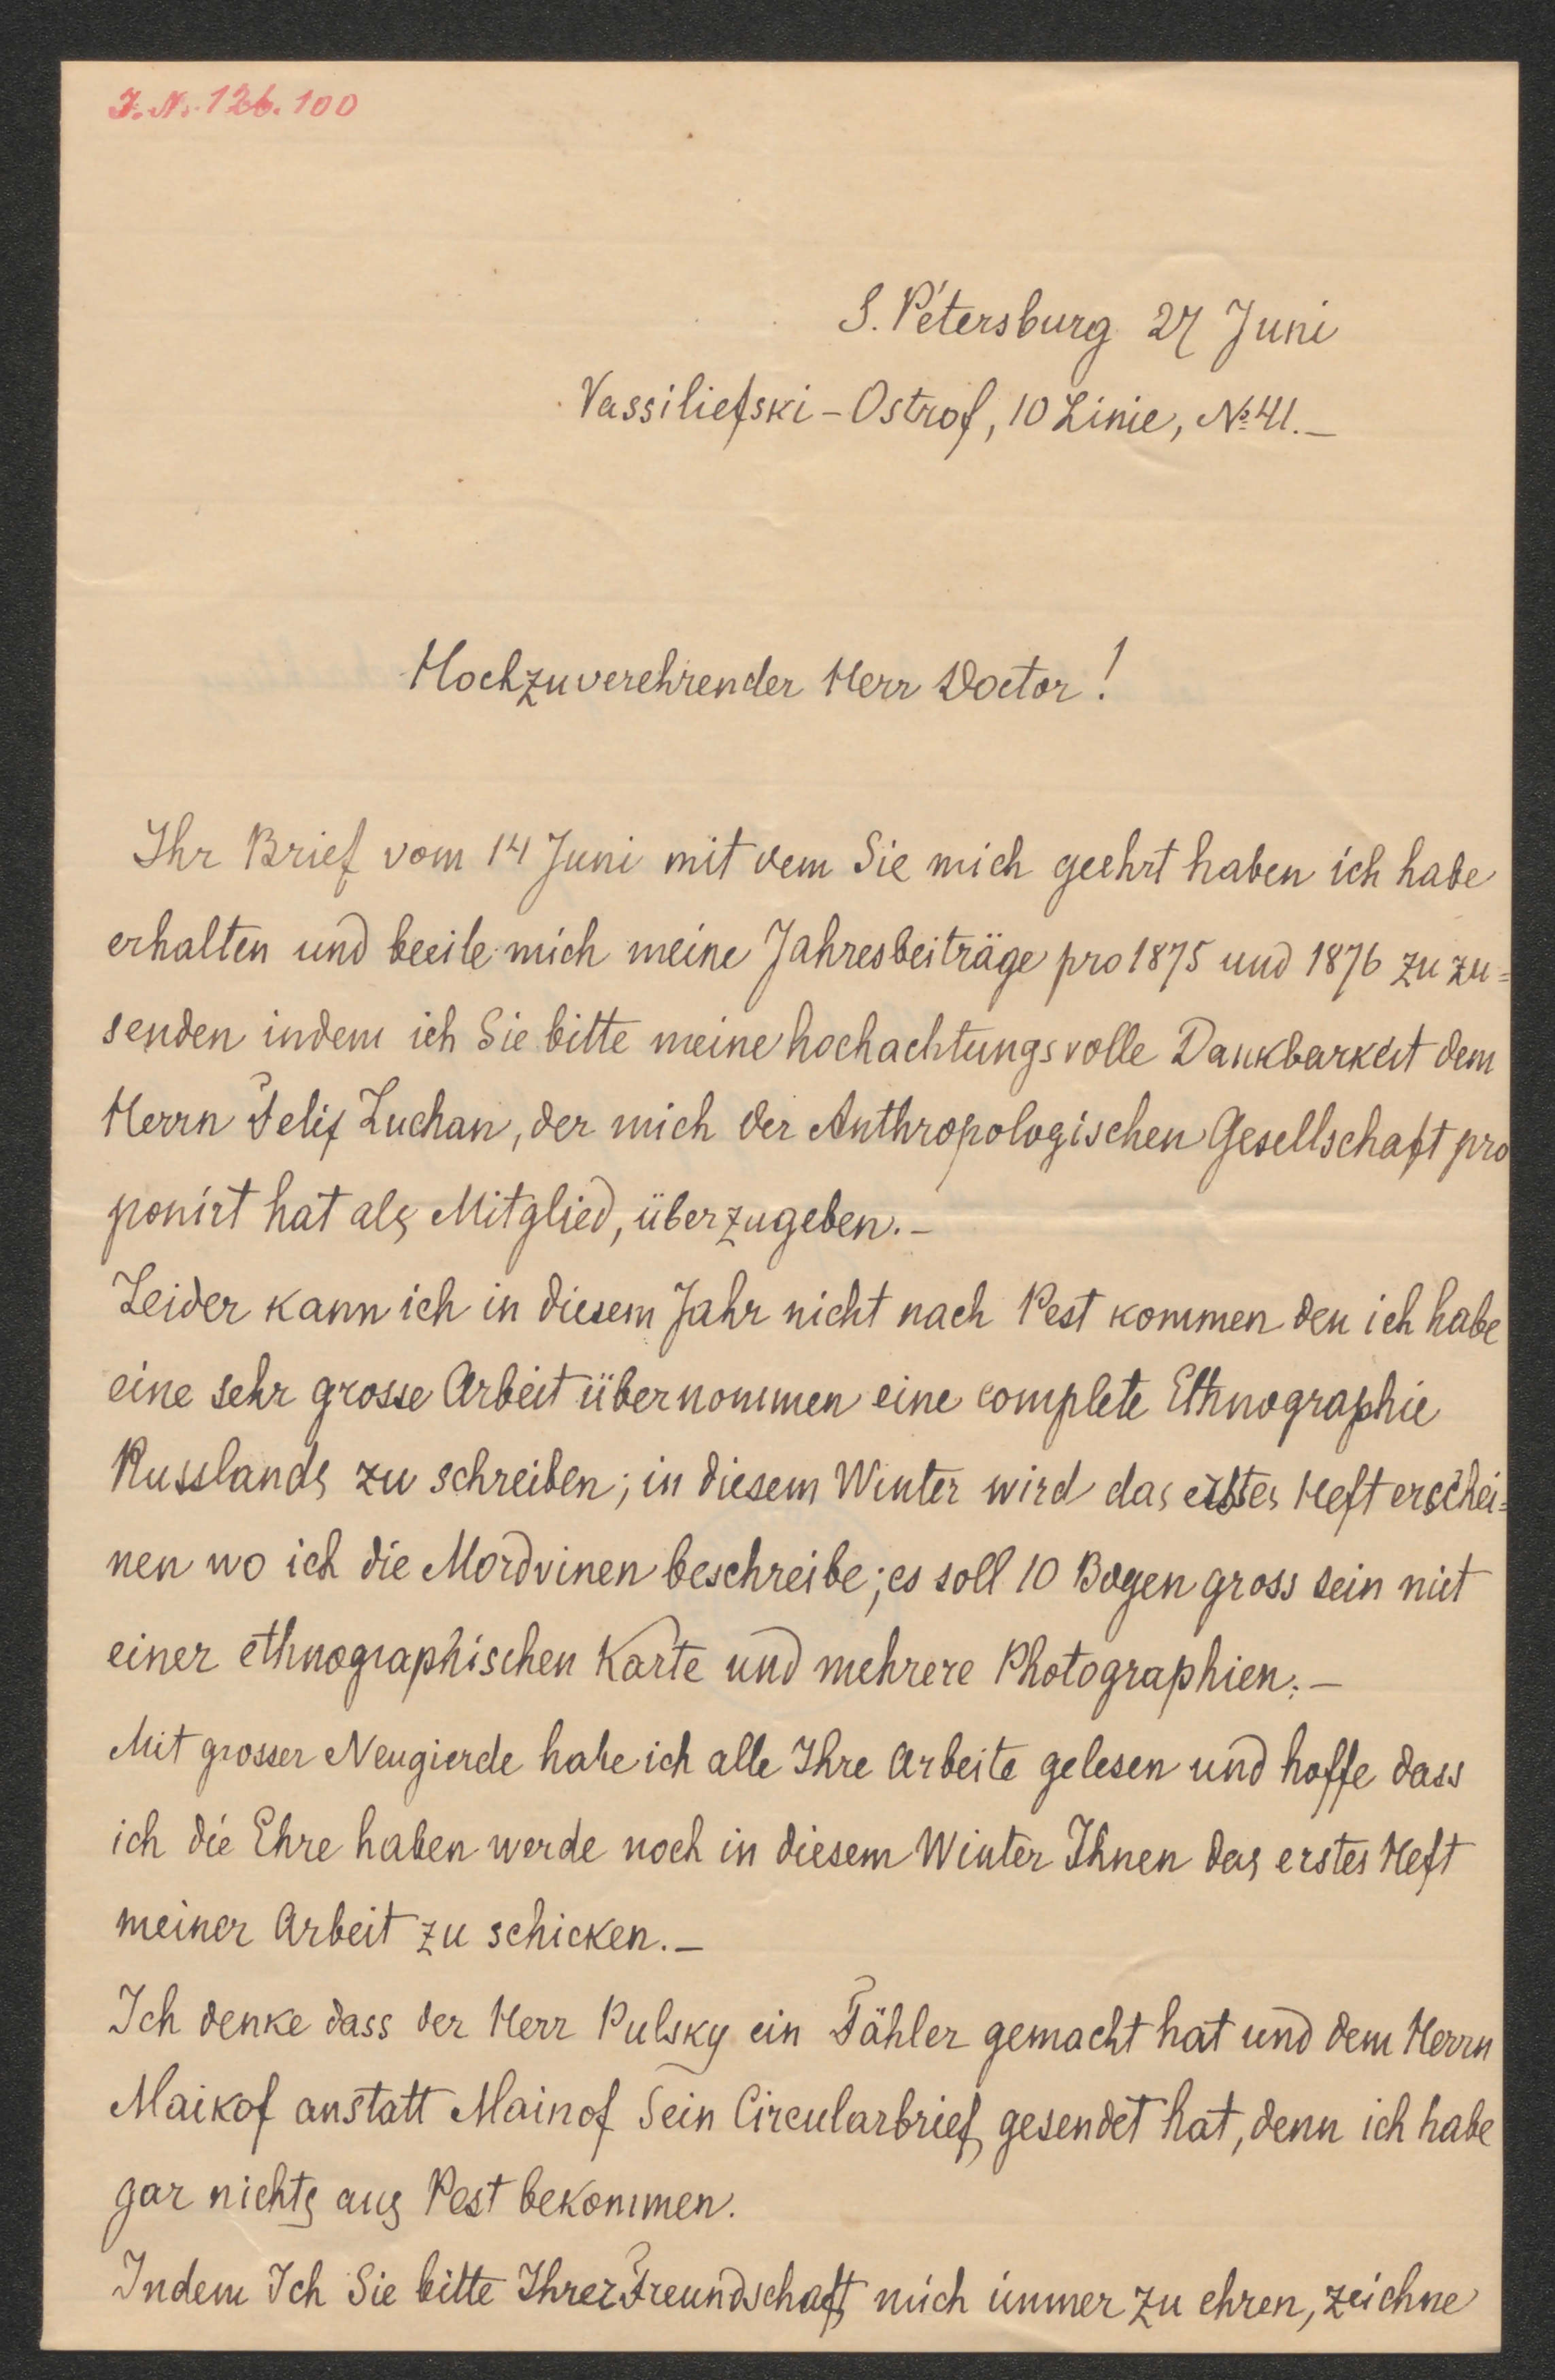 I. N. 126.100
S. Pétersburg 27 Juni
Vassiliefski-Ostrof, 10 Linie, № 41.—
Hochzuverehrender Herr Doctor!
Ihr Brief vom 14 Juni mit dem Sie mich geehrt haben ich habe
erhalten und beeile mich meine Jahresbeiträge pro 1875 und 1876 zu zu=
senden indem ich Sie bitte meine hochachtungsvolle Dankbarkeit dem
Herrn Felix Luchan, der mich der Anthropologischen Gesellschaft pro
ponirt hat als Mitglied, überzugeben.—
Leider kann ich in diesem Jahr nicht nach Pest kommen den ich habe
eine sehr grosse Arbeit übernommen eine complete Ethnographie
Russlands zu schreiben; in diesem Winter wird das erstes Heft erschei=
nen wo ich die Mordvinen beschreibe; es soll 10 Bogen gross sein mit
einer ethnographischen Karte und mehrere Photographien.—
Mit grosser Neugierde habe ich alle Ihre Arbeite gelesen und hoffe dass
ich die Ehre haben werde noch in diesem Winter Ihnen das erstes Heft
meiner Arbeit zu schicken.—
Ich denke dass der Herr Pulsky ein Fähler gemacht hat und dem Herrn
Maikof anstatt Mainof Sein Circularbrief gesendet hat, denn ich habe
gar nichts aus Pest bekommen.
Indem Ich Sie bitte Ihrer Freundschaft mich immer zu ehren, zeichne